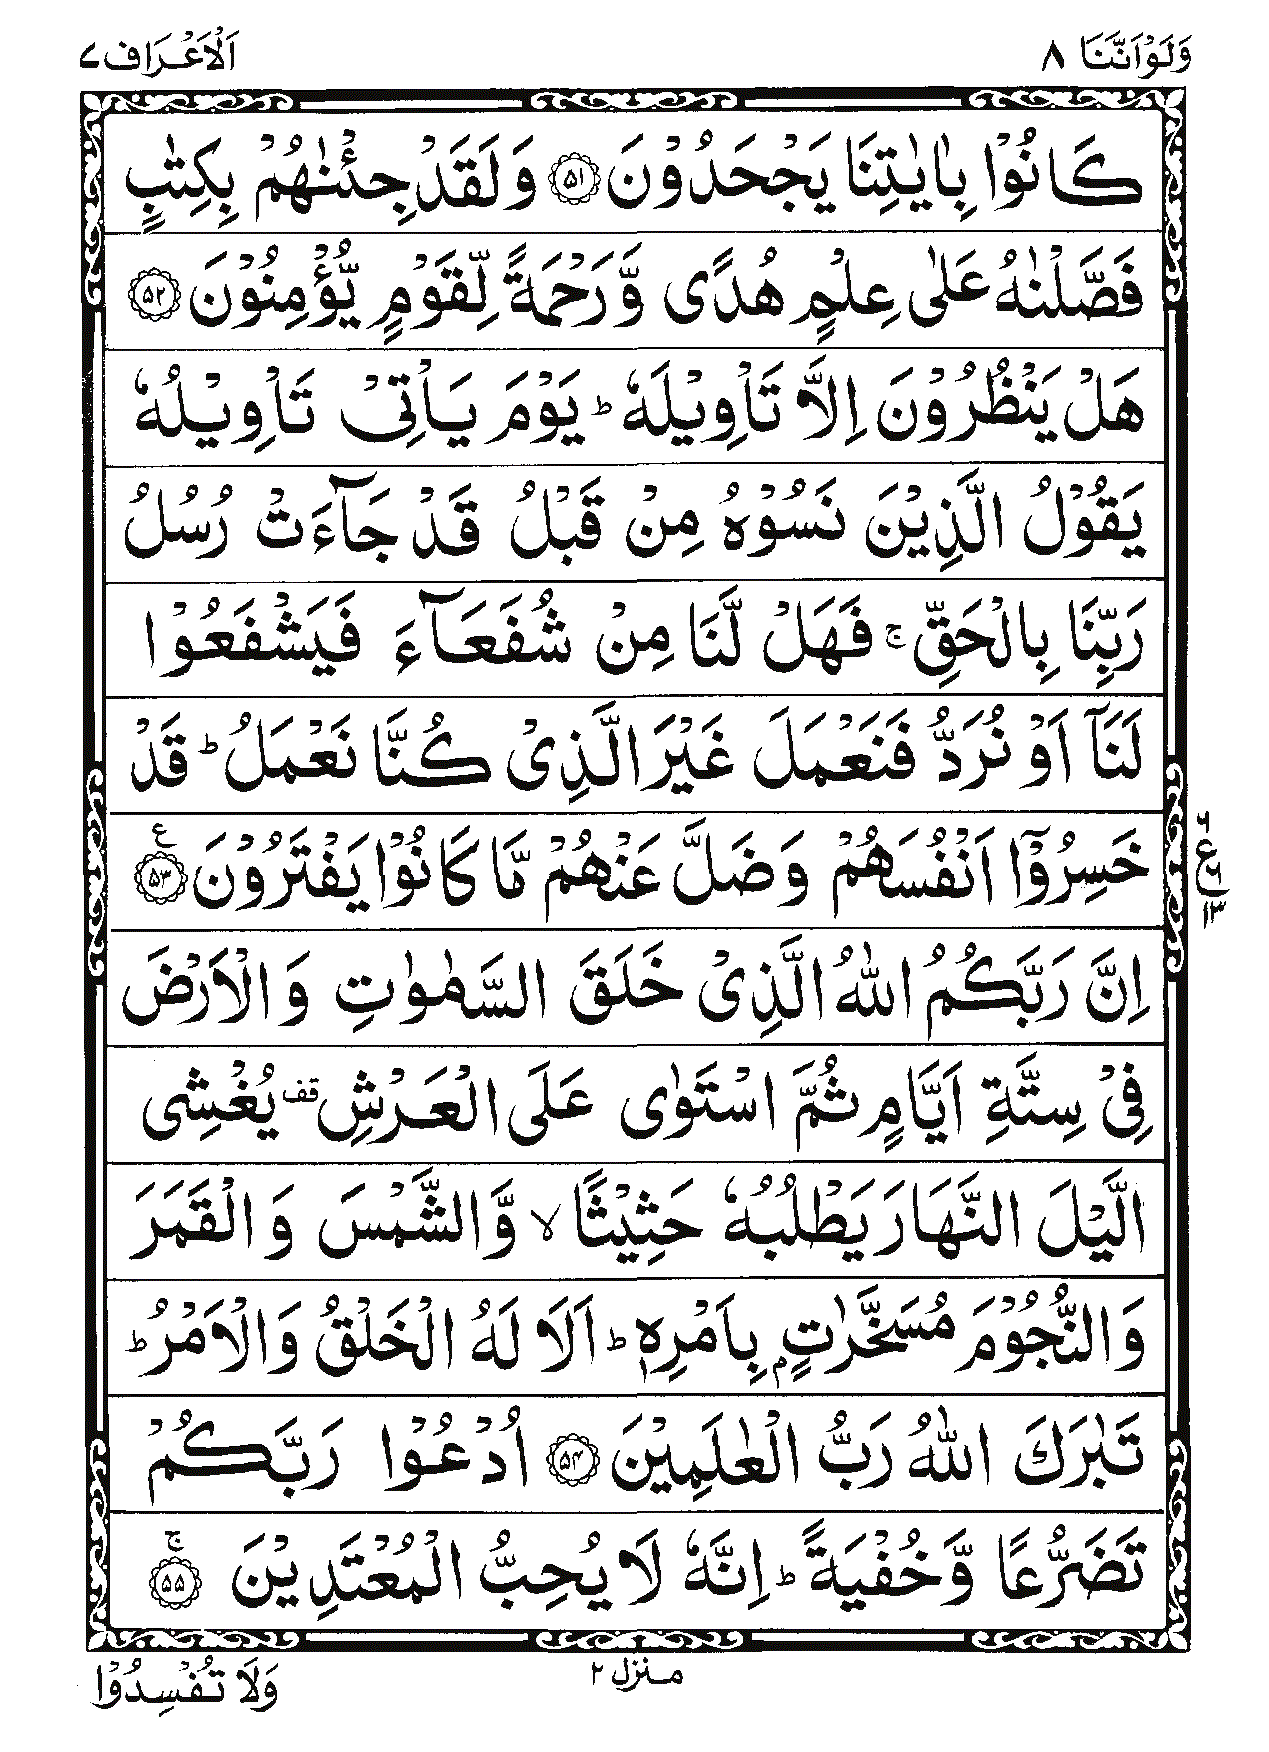 وَلَوْاَنَّنَا ٨
اَلْاَعْرَاف ٧
كَانُوْا بِاٰيٰتِنَا يَجْحَدُوْنَ ۝٥١ وَلَقَدْ جِئْنٰهُمْ بِكِتٰبٍ
فَصَّلْنٰهُ عَلٰى عِلْمٍ هُدًى وَّرَحْمَةً لِّقَوْمٍ يُّؤْمِنُوْنَ ۝٥٢
هَلْ يَنْظُرُوْنَ اِلَّا تَاْوِيْلَهٗ ؕ يَوْمَ يَاْتِيْ تَاْوِيْلُهٗ
يَقُوْلُ الَّذِيْنَ نَسُوْهُ مِنْ قَبْلُ قَدْ جَآءَتْ رُسُلُ
رَبِّنَا بِالْحَقِّ ۚ فَهَلْ لَّنَا مِنْ شُفَعَآءَ فَيَشْفَعُوْا
لَنَآ اَوْ نُرَدُّ فَنَعْمَلَ غَيْرَ الَّذِيْ كُنَّا نَعْمَلُ ؕ قَدْ
خَسِرُوْٓا اَنْفُسَهُمْ وَضَلَّ عَنْهُمْ مَّا كَانُوْا يَفْتَرُوْنَ ۝٥٣ ع
اِنَّ رَبَّكُمُ اللّٰهُ الَّذِيْ خَلَقَ السَّمٰوٰتِ وَالْاَرْضَ
فِيْ سِتَّةِ اَيَّامٍ ثُمَّ اسْتَوٰى عَلَى الْعَرْشِ قف يُغْشِى
الَّيْلَ النَّهَارَ يَطْلُبُهٗ حَثِيْثًا ۙ وَّالشَّمْسَ وَالْقَمَرَ
وَالنُّجُوْمَ مُسَخَّرٰتٍۭ بِاَمْرِهٖ ؕ اَلَا لَهُ الْخَلْقُ وَالْاَمْرُ ؕ
تَبٰرَكَ اللّٰهُ رَبُّ الْعٰلَمِيْنَ ۝٥٤ اُدْعُوْا رَبَّكُمْ
تَضَرُّعًا وَّخُفْيَةً ؕ اِنَّهٗ لَا يُحِبُّ الْمُعْتَدِيْنَ ۝٥٥ ۚ
منزل ٢
وَلَا تُفْسِدُوْا